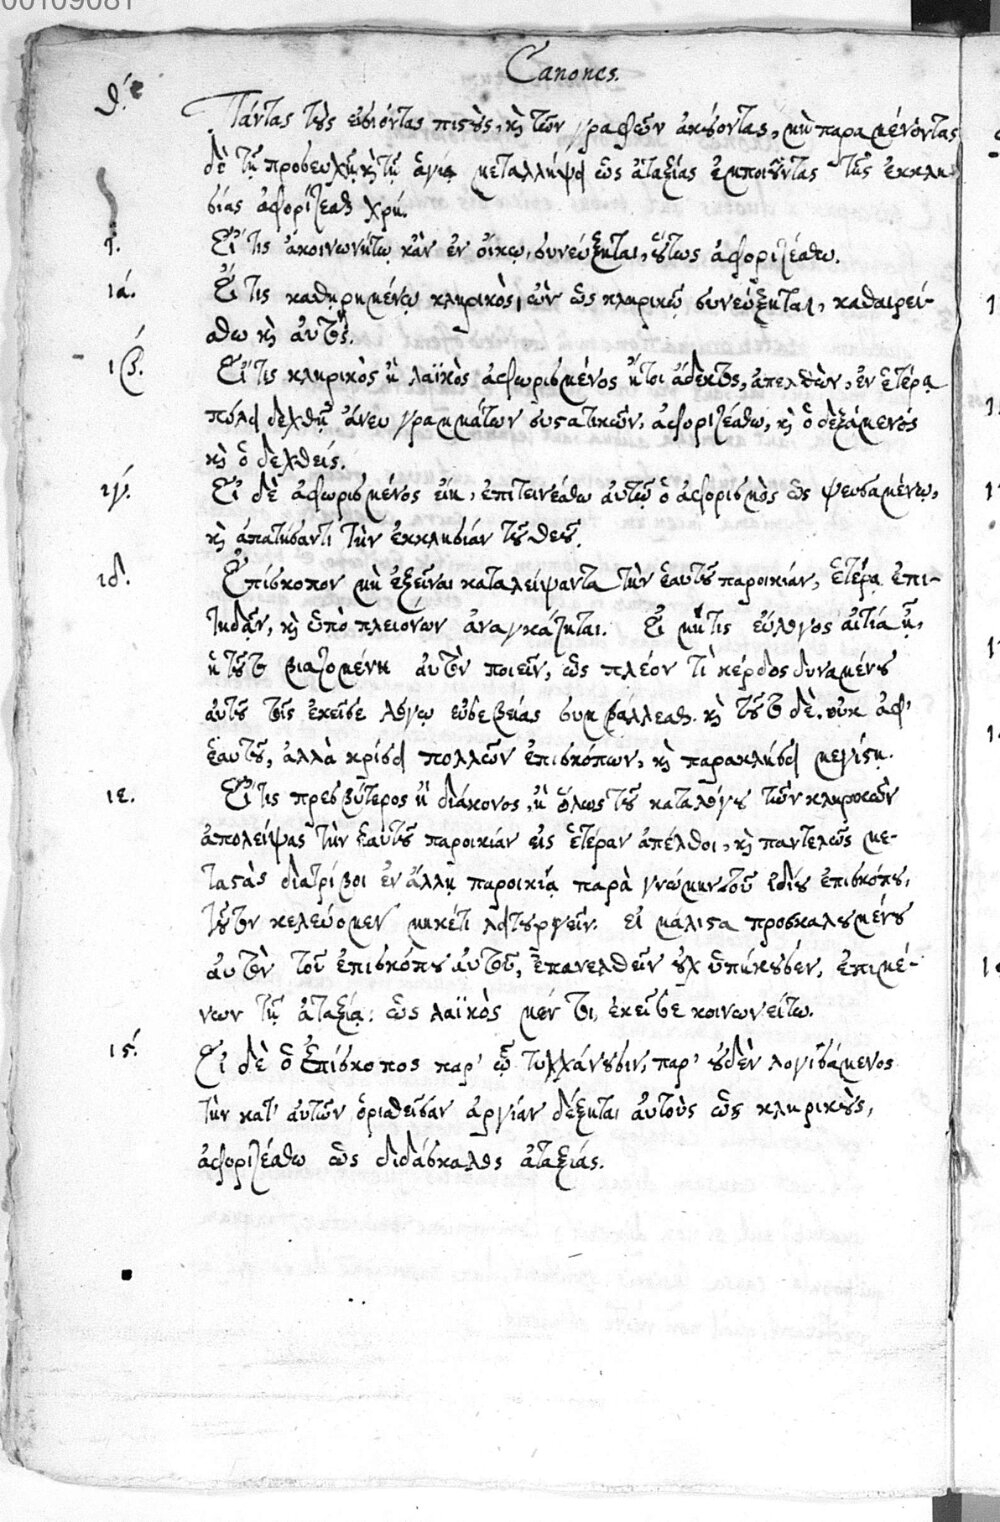 00109081
Canones.
θ΄. Πάντας τοὺς εἰσιόντας πιστοὺς, κỳ τῶν γραφῶν ἀκούοντας, μὴ παραμένοντας
δὲ τῇ προσευχῇ κỳ τῇ ἁγίᾳ μεταλλήψει ὡς ἀταξίας ἐμποιοῦντας τῆς ἐκκλη-
σίας ἀφορίζεσθαι χρή.
ι΄. Εἴ τις ἀκοινωνήτῳ κἂν ἐν οἴκῳ, συνεύξηται, οὕτως ἀφοριζέσθω.
ιά. Εἴ τις καθῃρημένῳ κληρικὸς, ὢν ὡς κληρικῷ συνεύξηται, καθαιρεί-
σθω κỳ αὐτός.
ιβ΄. Εἴ τις κληρικὸς ἢ λαϊκὸς ἀφωρισμένος ἤτοι ἄδεκτος, ἀπελθὼν, ἐν ἑτέρᾳ
πόλει δεχθῇ ἄνευ γραμμάτων συστατικῶν, ἀφοριζέσθω, κỳ ὁ δεξάμενος
κỳ ὁ δεχθείς.
ιγ΄. Εἰ δὲ ἀφωρισμένος εἴη, ἐπιτεινέσθω αὐτῷ ὁ ἀφορισμὸς ὡς ψευσαμένῳ,
κỳ ἀπατήσαντι τὴν ἐκκλησίαν τοῦ θεοῦ.
ιδ΄. Ἐπίσκοπον μὴ ἐξεῖναι καταλείψαντα τὴν ἑαυτοῦ παροικίαν, ἑτέρᾳ ἐπι-
πηδᾷν, κἂν ὑπὸ πλειόνων ἀναγκάζηται. Εἰ μή τις εὔλογος αἰτία ᾖ,
ἡ τοῦτο βιαζομένη αὐτὸν ποιεῖν, ὡς πλέον τὶ κέρδος δυναμένου
αὐτοῦ τοῖς ἐκεῖσε λόγῳ εὐσεβείας συμβάλλεσθαι. κỳ τοῦτο δὲ. οὐκ ἀφ'
ἑαυτοῦ, ἀλλὰ κρίσει πολλῶν ἐπισκόπων, κỳ παρακλήσει μεγίστῃ.
ιε. Εἴ τις πρεσβύτερος ἢ διάκονος, ἢ ὅλως τοῦ καταλόγου τῶν κληρικῶν
ἀπολείψας τὴν ἑαυτοῦ παροικίαν εἰς ἑτέραν ἀπέλθοι, κỳ παντελῶς με-
ταστὰς διατρίβοι ἐν ἄλλῃ παροικίᾳ παρὰ γνώμην τοῦ ἰδίου ἐπισκόπου,
τοῦτον κελεύομεν μηκέτι λειτουργεῖν. εἰ μάλιστα προσκαλουμένου
αὐτὸν τοῦ ἐπισκόπου αὐτοῦ, ἐπανελθεῖν οὐχ ὑπήκουσεν, ἐπιμέ-
νων τῇ ἀταξίᾳ: ὡς λαϊκὸς μέν τοι, ἐκεῖσε κοινωνείτω.
ις΄. Εἰ δὲ ὁ Ἐπίσκοπος παρ' ᾧ τυγχάνουσιν, παρ' οὐδὲν λογισάμενος
τὴν κατ' αὐτῶν ὁρισθεῖσαν ἀργίαν δέξηται αὐτοὺς ὡς κληρικοὺς,
ἀφοριζέσθω ὡς διδάσκαλος ἀταξίας.